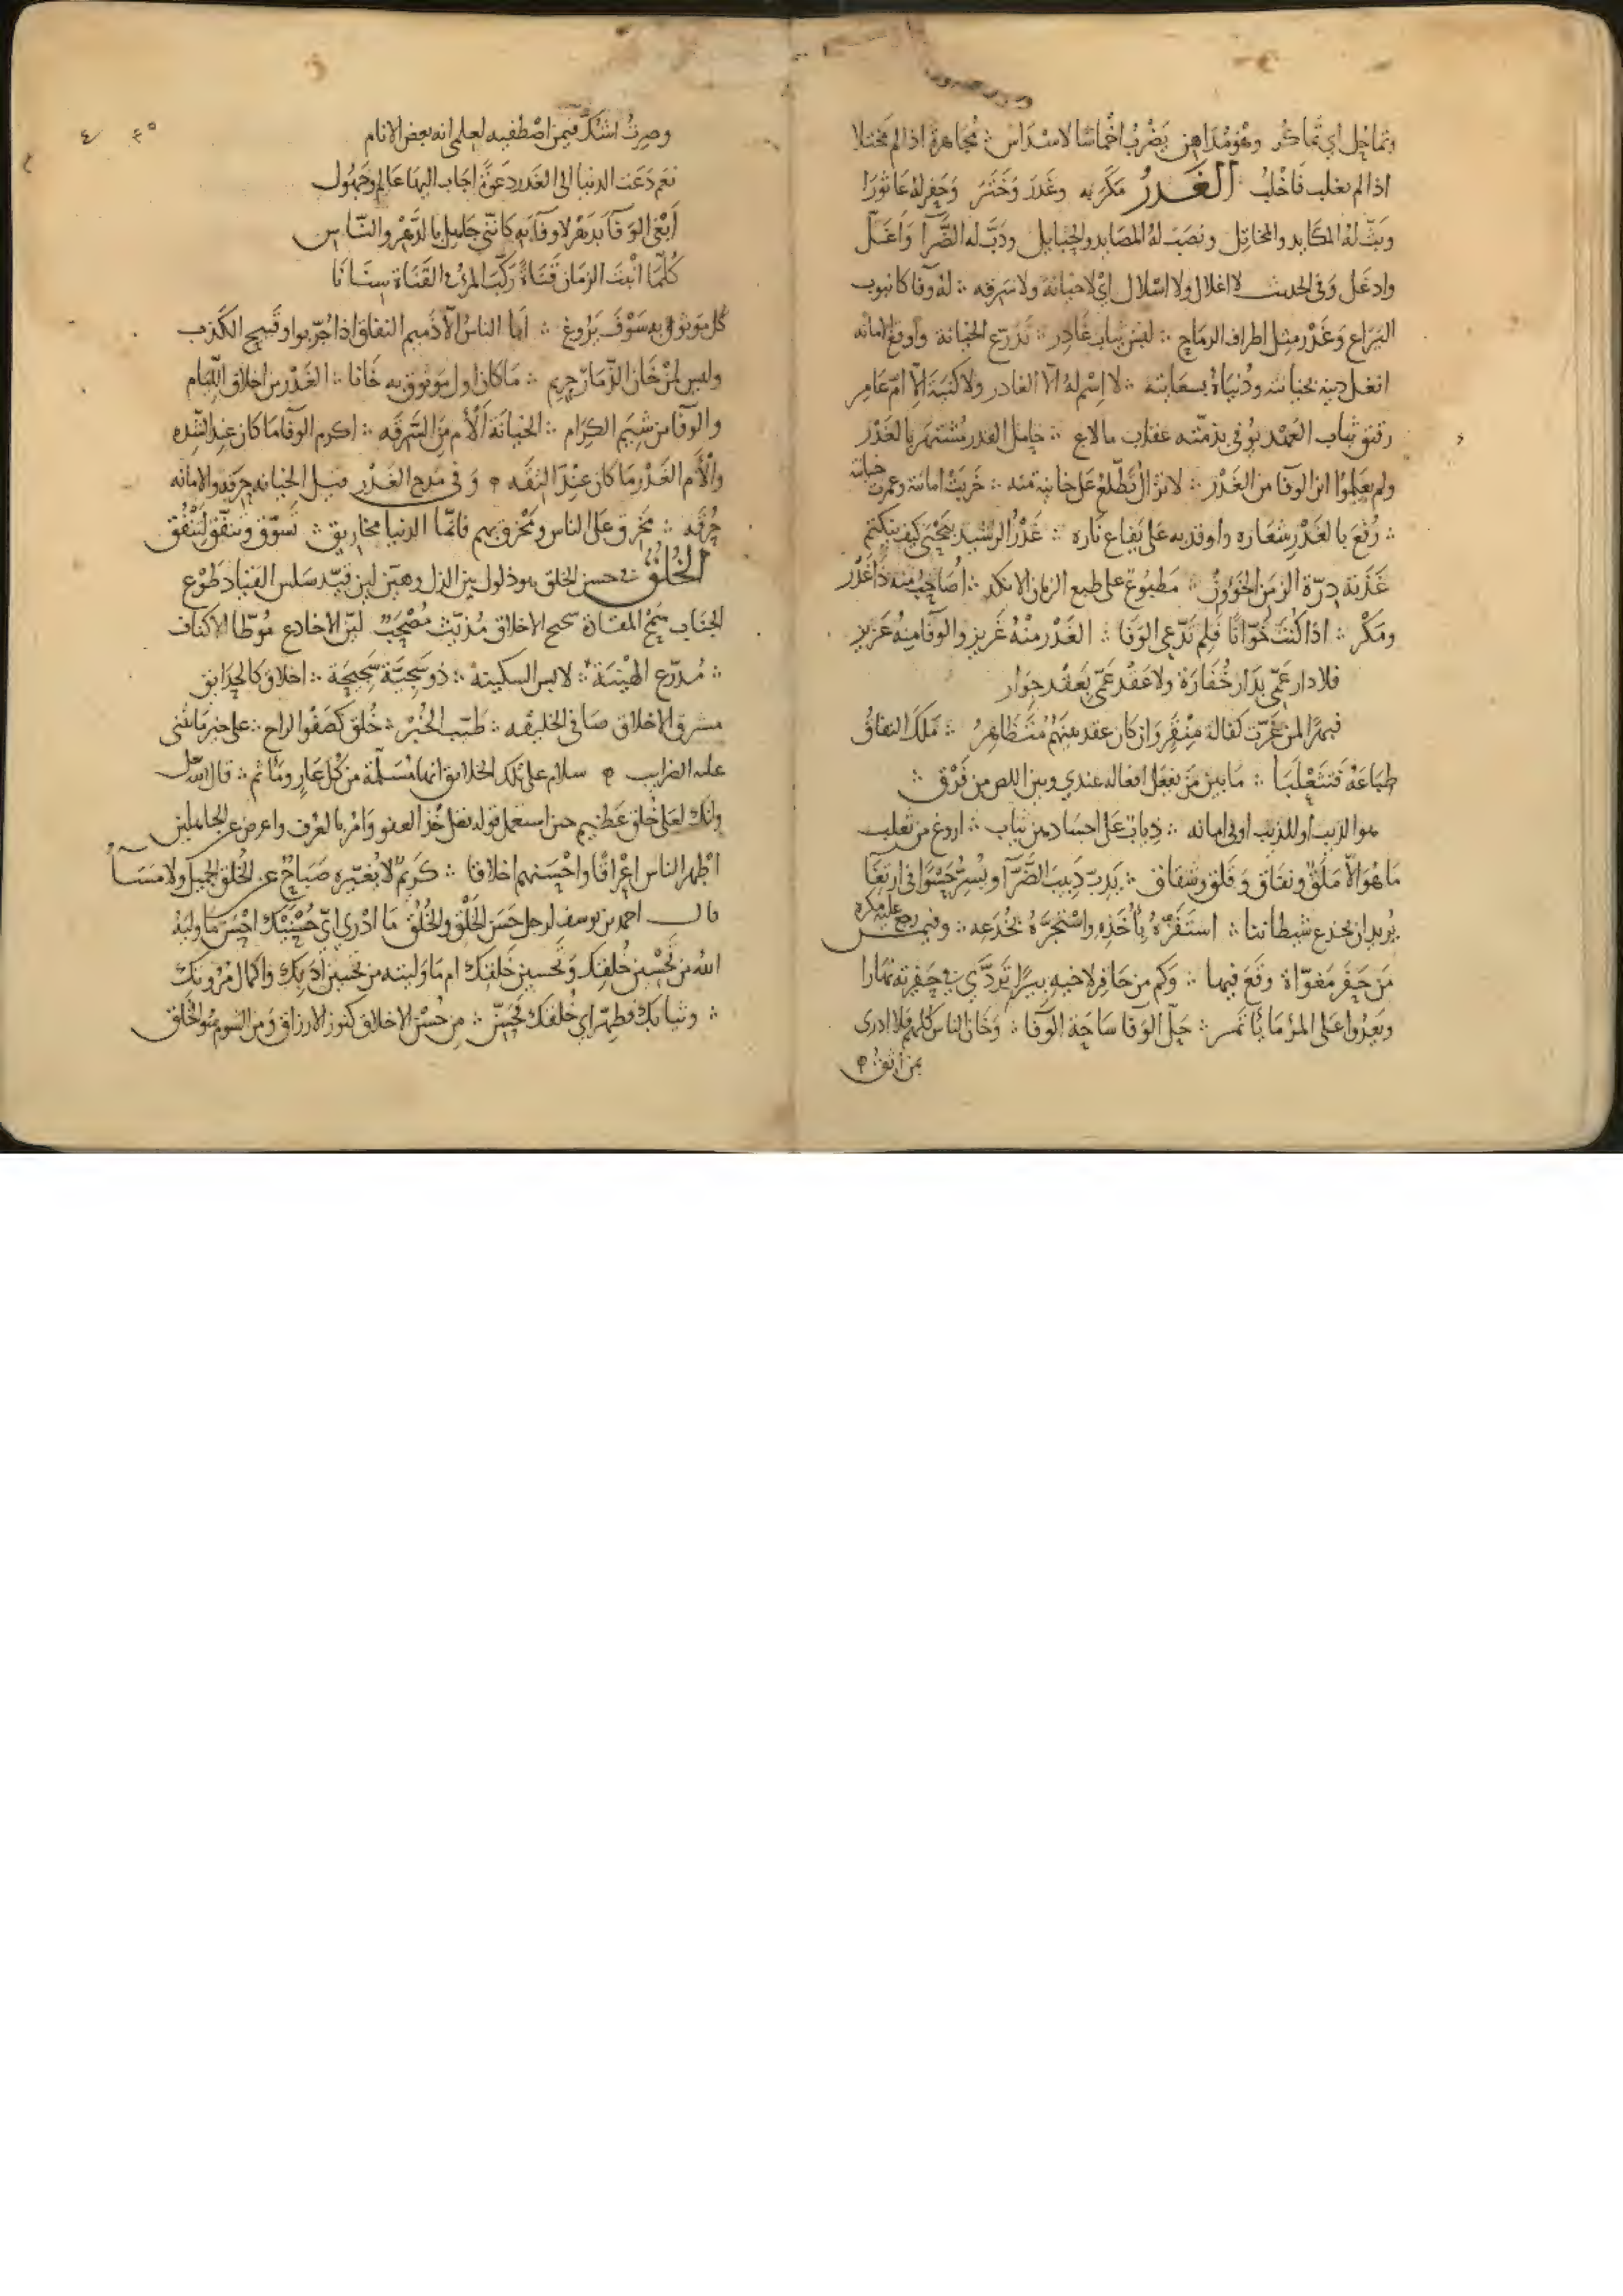 وتماحل اي تماكر وهو مداهن يضرب اخماسا لاسداس ؞ مجاهرة اذا لم مختلا
اذا لم تغلب فاخلب الغدر مكر به وغدر وختر وحفر له عاثورا
وبث له المكايد والمخاتل ونصب له المصايد والحبايل ودب له الضرآ واغل
وادغل وفي الحديث لا اغلال ولا اسلال اي لا خيانة ولا سرقه ؞ له وفا كانبوب
اليراع وغدر مثل اطراف الرماح ؞ لبس ثياب غادر ؞ تدرع الخيانة
انغل دينه بخيانته ودنياه بسعايته ؞ لا اسم له الا الغادر ولا كنية الا ام عامر
رقيق ثياب العهد ؞ حامل الغدر مشتهر بالغدر
ولم يعلموا اين الوفآ من الغدر ؞ لا تزال تطلع على خاينة منه ؞ خربت امانته وعمرت خيانته
؞ رفع بالغدر شعاره واوقد به على يفاع ناره ؞ غدر الرشيد بيحيى كيف ينكتم
غذته درة الزمن الخؤون ؞ مطبوع على طبع الزمان الانكد ؞ اصاحب منه ذا غدر
ومكر ؞ اذا كنت خوانا فلم تدعي الوفا ؞ الغدر منه غريز والوفا منه عزيز
فلا دار عمي بدار خفارة ولا عقد عمي بعقد جوار
فيهرا لمن غرت كفالة منقر وان كان عقد منهم متظاهر ؞ ملك النفاق
طباعه فتثعلبا ؞ ما بين من يفعل افعاله عندي وبين اللص من فرق ؞
هو الذيب او للذيب اوفى امانه ؞ ذياب على اجساد من ثياب ؞ اروغ من ثعلب
ما هو الا ملق ونفاق وقلق وشقاق ؞ يدب دبيب الضرآ ويسر حسوا في ارتغا
يريد ان يخدع شيطاننا ؞ استفزه ياخذه واستجره يخدعه ؞ وفيمن رجع عليه مكره
من حفر مغواة وقع فيها ؞ وكم من حافر لاخيه بيرا تردي في حفرته نهارا
ويعدوا على المرء ما ياتمر ؞ حل الوفا ساحة الوفا ؞ وخان الناس كلهم فلا ادرى
بمن اثق
وصرت اشك فيمن اصطفيه لعلمي انه بعض الانام
نعم دعت الدنيا الى الغدر دعوة اجاب اليها عالم وجهول
ابغي الوفآ بدهر لا وفآ به كانني جاهل بالدهر والناس
كلما انبت الزمان قناة ركب المرء في القناة سنانا
كل موثوق به سوف يروغ ؞ اما الناس الا ذميم النفاق اذا جربوا وقبيح الكذب
وليس لمن خان الذمار حريم ؞ ما كان اول موثوق به خانا ؞ الغدر من اخلاق الليام
والوفآ من شيم الكرام ؞ الخيانة ألأم من السرقه ؞ اكرم الوفآ ما كان عند الشده
وألأم الغدر ما كان عند الثقه وفي مدح الغدر قيل الخيانه حرفه والامانه
حرفه ؞ مخرق على الناس ومخرق بهم فانما الدنيا مخاريق ؞ تسوق ونفق لتنفق
الخلق في حسن الخلق هو ذلول بين الذل وهين لين قيد سلس القياد طوع
الجناب سمح المقادة سحيح الاخلاق مديث مصحب لين الاخادع موطا الاكناف
؞ مدرع الهيبة ؞ لابس السكينه ؞ ذو سجية سجيحة ؞ اخلاق كالحدايق
مشرق الاخلاق صافي الخليقه ؞ طيب الخبر ؞ خلق كصفو الراح ؞ على خير ما تثنى
عليه الضرايب سلام على تلك الخلايق انها مسلمة من كل عار ومأثم ؞ قال الله جل
وانك لعلى خلق عظيم حين استعمل قوله تعلى خذ العفو وامر بالعرف واعرض عن الجاهلين
اظهر الناس اعراقا واحسنهم اخلاقا ؞ كريم لا يغيره صباح عن الخلق الجميل ولا مسآء
قال احمد بن يوسف لرجل حسن الخلق والخلق ما ادري اي حسنيك احسن ما وليه
الله من تحسين خلقك وتحسين خلقك ام ما وليته من تحسين ادبك واكمال مروتك
؞ وثيابك فطهر اي خلقك فحسن ؞ من حسن الاخلاق كنوز الارزاق ومن الشوم سو الخلق